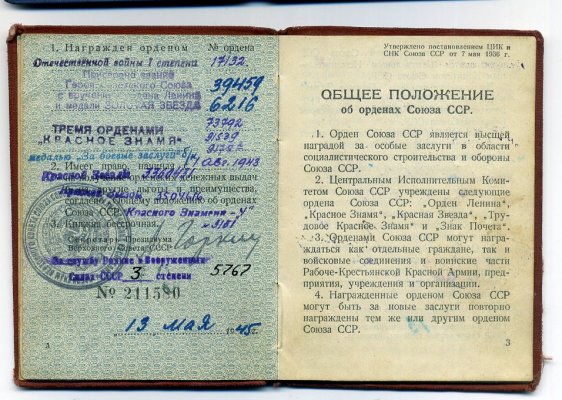 1. Награжден орденом № ордена
Отечественной войны I степени 17132
Присвоено звание
Героя Советского Союза 39459
с вручением ордена Ленина
и медали ЗОЛОТАЯ ЗВЕЗДА 6216
ТРЕМЯ ОРДЕНАМИ
„КРАСНОЕ ЗНАМЯ"
медалью „За боевые заслуги" б/н
2. Имеет право, начиная с 1 авг. 1943
Красной Звезды
денежных выдач
другие льготы и преимущества,
согласно общему положению об орденах
Союза ССР. Красного Знамени
3. Книжка бессрочная.
Секретарь Президиума
Верховного Совета СССР
За службу Родине в Вооруженных
Силах СССР 3 степени 5767
№ 211580
13 мая 1945 г.
Утверждено постановлением ЦИК и
СНК Союза ССР от 7 мая 1936 г.
ОБЩЕЕ ПОЛОЖЕНИЕ
об орденах Союза ССР.
1. Орден Союза ССР является высшей
наградой за особые заслуги в области
социалистического строительства и обороны
Союза ССР.
2. Центральным Исполнительным Коми-
тетом Союза ССР учреждены следующие
ордена Союза ССР: „Орден Ленина",
„Красное Знамя", „Красная Звезда", „Тру-
довое Красное Знамя" и „Знак Почета".
3. Орденами Союза ССР могут награ-
ждаться как отдельные граждане, так и
войсковые соединения и воинские части
Рабоче-Крестьянской Красной Армии, пред-
приятия, учреждения и организации.
4. Награжденные орденом Союза ССР
могут быть за новые заслуги повторно
награждены тем же или другим орденом
Союза ССР.
3